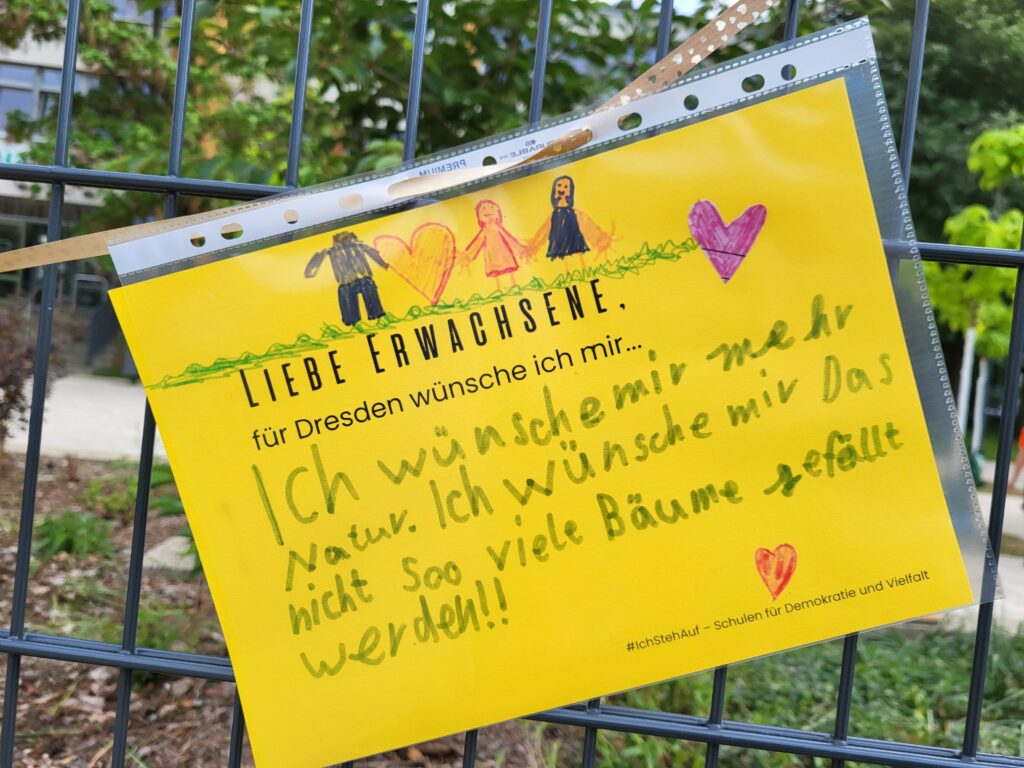 DURABLE
PREMIUM
LIEBE ERWACHSENE,
für Dresden wünsche ich mir...
Ich wünsche mir mehr
Natur. Ich wünsche mir Das
nicht soo viele Bäume gefällt
werden!!
#IchStehAuf – Schulen für Demokratie und Vielfalt